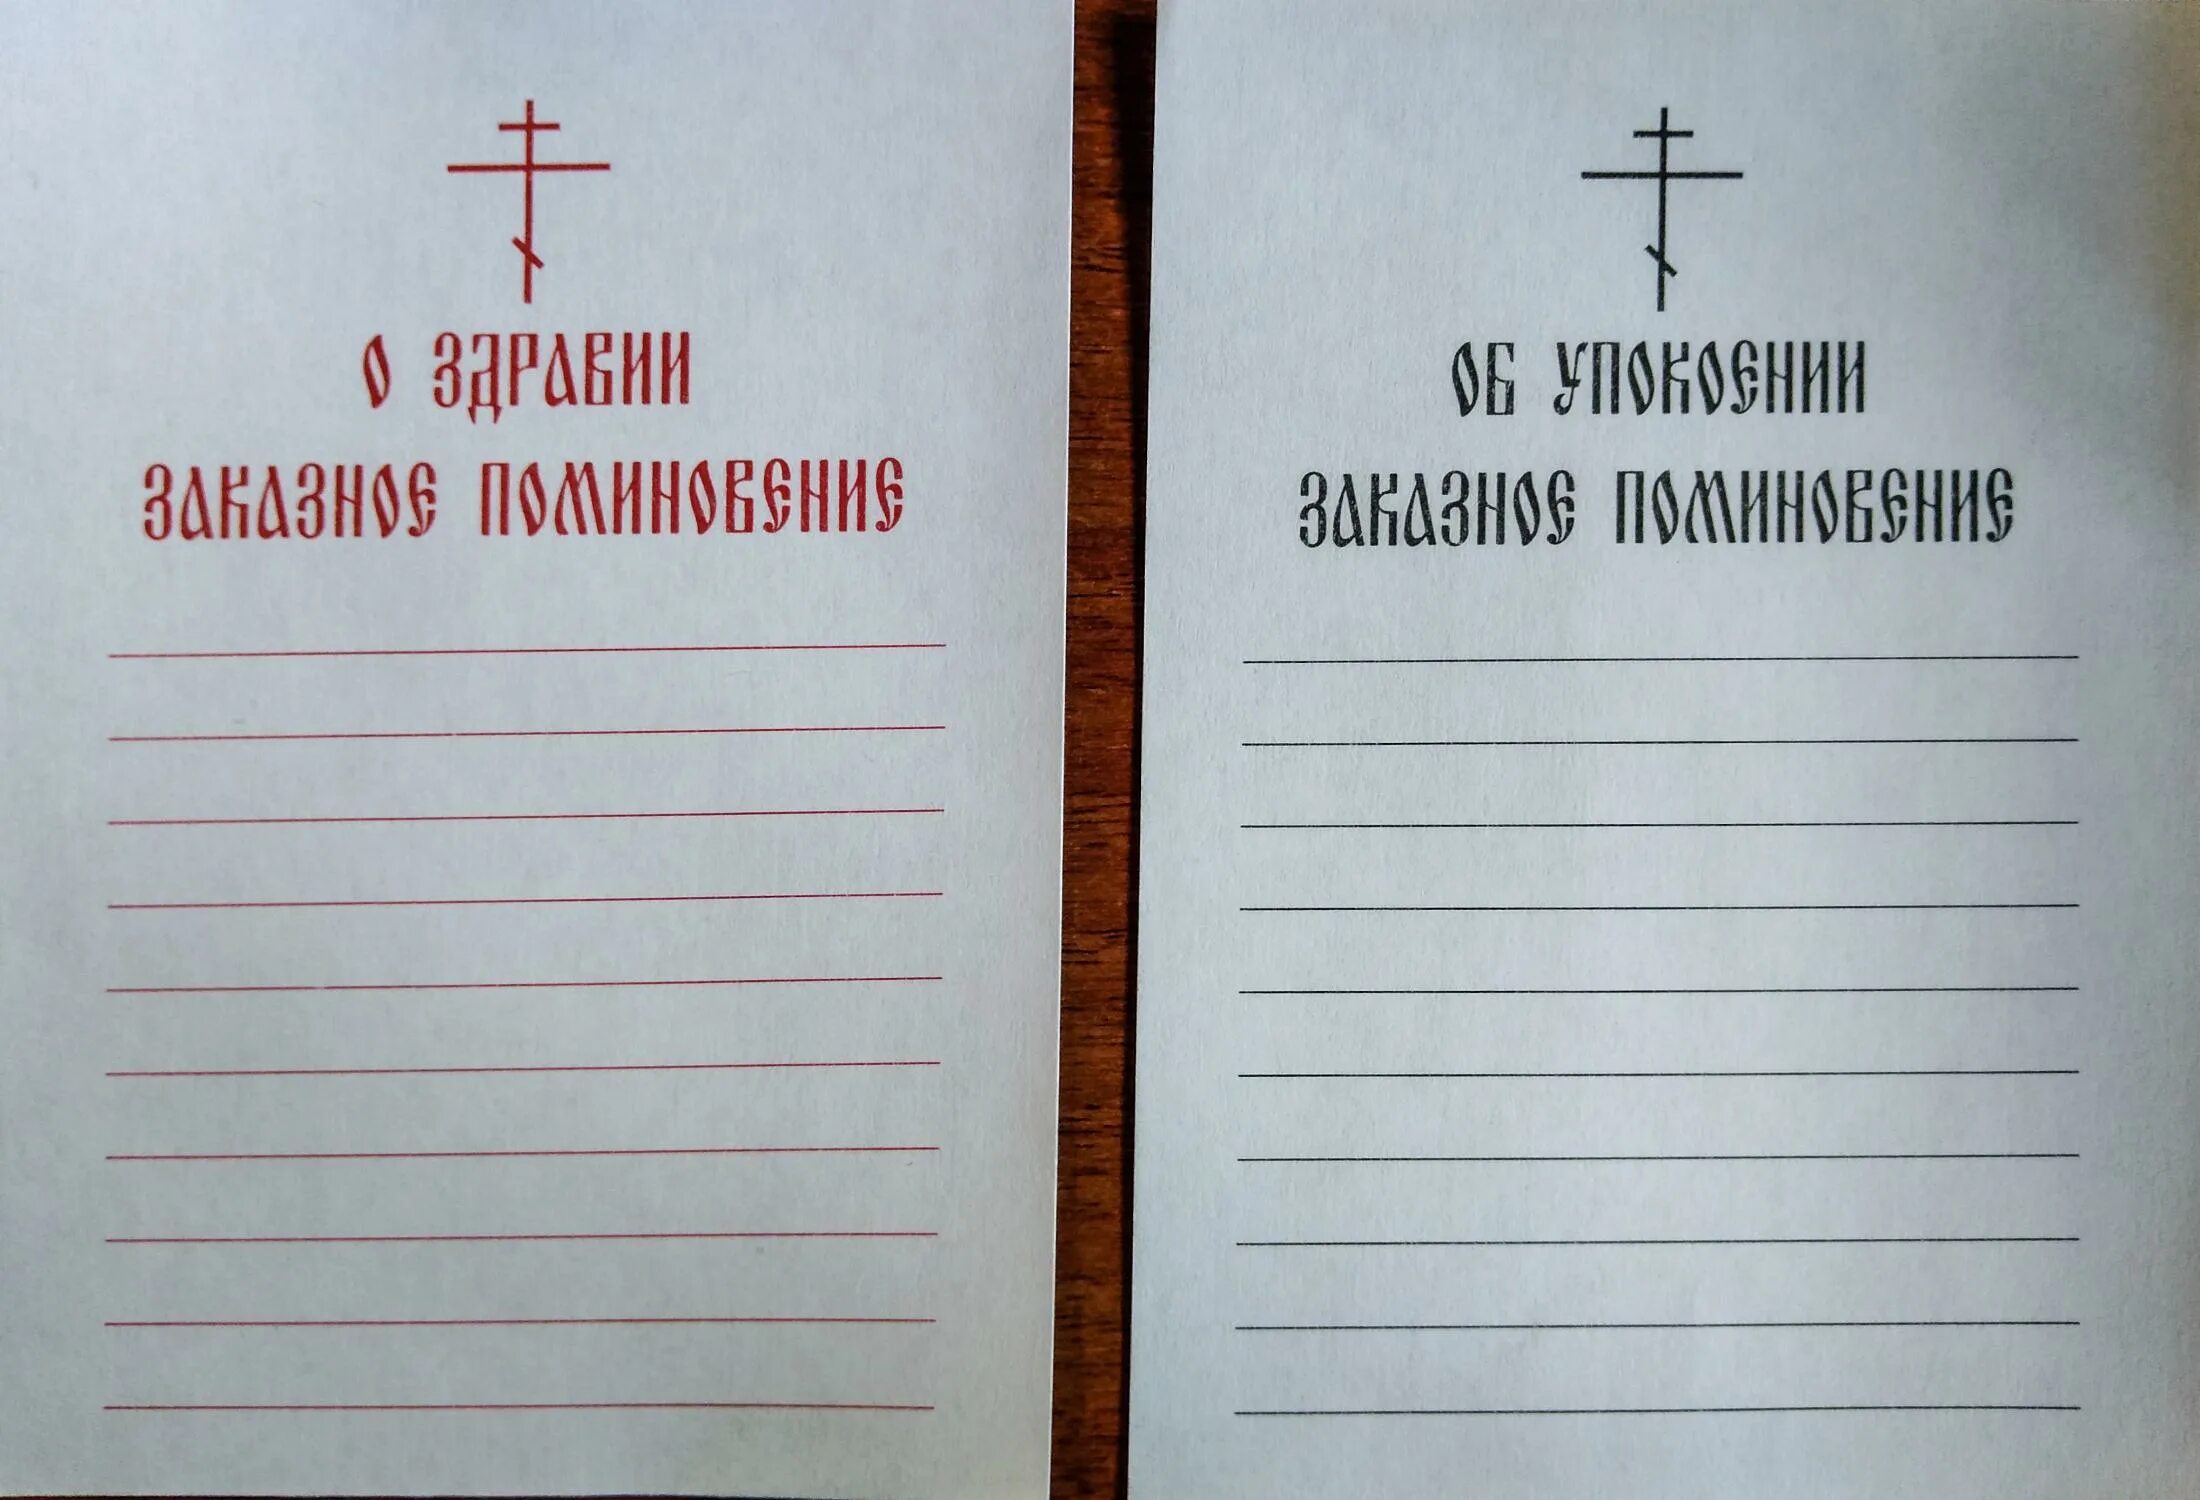 О ЗДРАВИИ
ЗАКАЗНОЕ ПОМИНОВЕНИЕ
ОБ УПОКОЕНИИ
ЗАКАЗНОЕ ПОМИНОВЕНИЕ